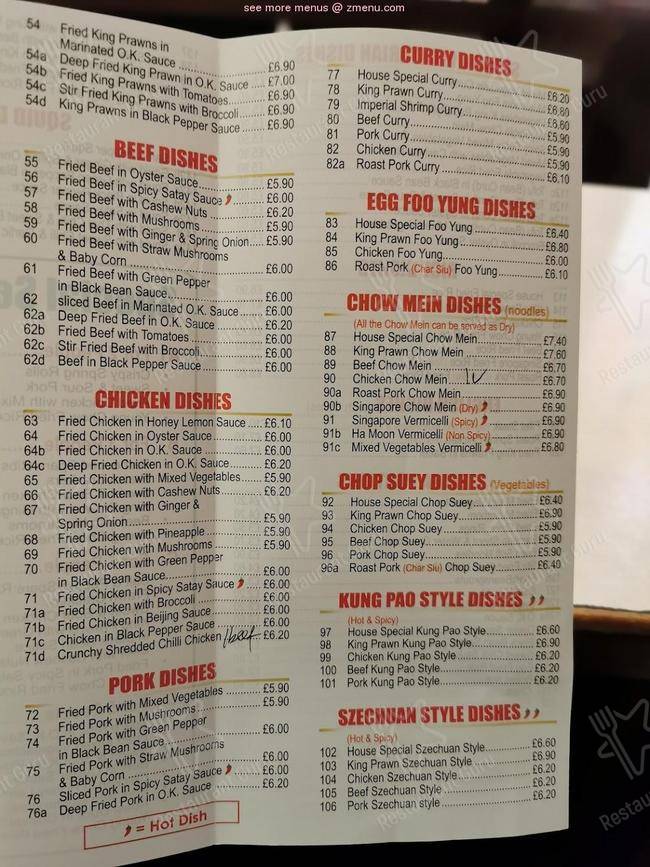 see more menus @ zmenu.com
54 Fried King Prawns in
Marinated O.K. Sauce £6.90
54a Deep Fried King Prawn in O.K. Sauce £7.00
54b Fried King Prawns with Tomatoes £6.90
54c Stir Fried King Prawns with Broccoli £6.90
54d King Prawns in Black Pepper Sauce £6.90
BEEF DISHES
55 Fried Beef in Oyster Sauce £5.90
56 Fried Beef in Spicy Satay Sauce £6.00
57 Fried Beef with Cashew Nuts £6.20
58 Fried Beef with Mushrooms £5.90
59 Fried Beef with Ginger & Spring Onion £5.90
60 Fried Beef with Straw Mushrooms
& Baby Corn £6.00
61 Fried Beef with Green Pepper
in Black Bean Sauce £6.00
62 sliced Beef in Marinated O.K. Sauce £6.00
62a Deep Fried Beef in O.K. Sauce £6.20
62b Fried Beef with Tomatoes £6.00
62c Stir Fried Beef with Broccoli £6.00
62d Beef in Black Pepper Sauce £6.00
CHICKEN DISHES
63 Fried Chicken in Honey Lemon Sauce £6.10
64 Fried Chicken in Oyster Sauce £6.00
64b Fried Chicken in O.K. Sauce £6.00
64c Deep Fried Chicken in O.K. Sauce £6.20
65 Fried Chicken with Mixed Vegetables £5.90
66 Fried Chicken with Cashew Nuts £6.20
67 Fried Chicken with Ginger &
Spring Onion £5.90
68 Fried Chicken with Pineapple £5.90
69 Fried Chicken with Mushrooms £5.90
70 Fried Chicken with Green Pepper
in Black Bean Sauce £6.00
71 Fried Chicken in Spicy Satay Sauce £6.00
71a Fried Chicken with Broccoli £6.00
71b Fried Chicken in Beijing Sauce £6.00
71c Chicken in Black Pepper Sauce £6.00
71d Crunchy Shredded Chilli Chicken /beef £6.20
PORK DISHES
72 Fried Pork with Mixed Vegetables £5.90
73 Fried Pork with Mushrooms £5.90
74 Fried Pork with Green Pepper
in Black Bean Sauce £6.00
75 Fried Pork with Straw Mushrooms
& Baby Corn £6.00
76 Sliced Pork in Spicy Satay Sauce £6.00
76a Deep Fried Pork in O.K. Sauce £6.20
= Hot Dish
CURRY DISHES
77 House Special Curry £6.20
78 King Prawn Curry £6.80
79 Imperial Shrimp Curry £6.60
80 Beef Curry £5.90
81 Pork Curry £5.90
82 Chicken Curry £5.90
82a Roast Pork Curry £6.10
EGG FOO YUNG DISHES
83 House Special Foo Yung £6.40
84 King Prawn Foo Yung £6.80
85 Chicken Foo Yung £6.00
86 Roast Pork (Char Siu) Foo Yung £6.10
CHOW MEIN DISHES (noodles)
(All the Chow Mein can be served as Dry)
87 House Special Chow Mein £7.40
88 King Prawn Chow Mein £7.60
89 Beef Chow Mein £6.70
90 Chicken Chow Mein £6.70
90a Roast Pork Chow Mein £6.90
90b Singapore Chow Mein (Dry) £6.90
91 Singapore Vermicelli (Spicy) £6.90
91b Ha Moon Vermicelli (Non Spicy) £6.90
91c Mixed Vegetables Vermicelli £6.80
CHOP SUEY DISHES (Vegetables)
92 House Special Chop Suey £6.40
93 King Prawn Chop Suey £6.90
94 Chicken Chop Suey £5.90
95 Beef Chop Suey £5.90
96 Pork Chop Suey £5.90
96a Roast Pork (Char Siu) Chop Suey £6.40
KUNG PAO STYLE DISHES
(Hot & Spicy)
97 House Special Kung Pao Style £6.60
98 King Prawn Kung Pao Style £6.90
99 Chicken Kung Pao Style £6.20
100 Beef Kung Pao Style £6.20
101 Pork Kung Pao Style £6.20
SZECHUAN STYLE DISHES
(Hot & Spicy)
102 House Special Szechuan Style £6.60
103 King Prawn Szechuan Style £6.90
104 Chicken Szechuan Style £6.20
105 Beef Szechuan Style £6.20
106 Pork Szechuan style £6.20